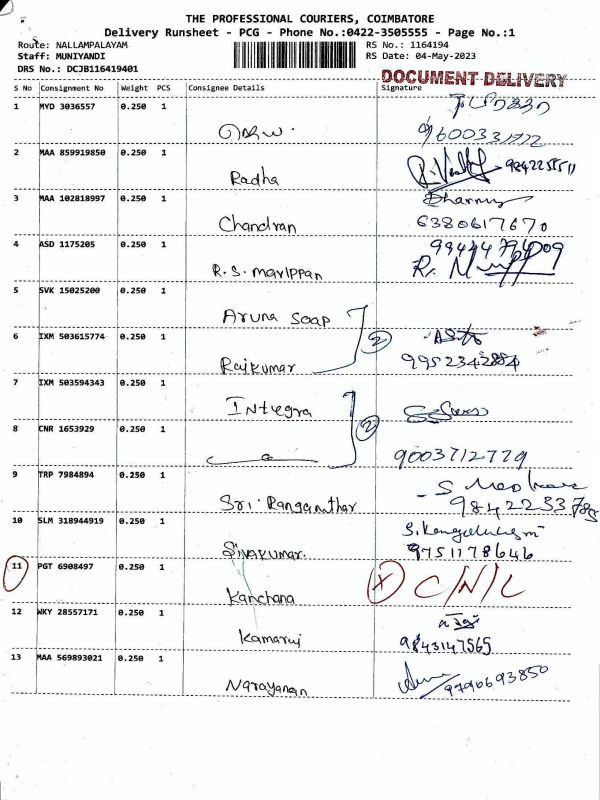 THE PROFESSIONAL COURIERS, COIMBATORE
Delivery Runsheet - PCG - Phone No.:0422-3505555 - Page No.:1
Route: NALLAMPALAYAM RS No.: 1164194
Staff: MUNIYANDI RS Date: 04-May-2023
DRS No.: DCJB116419401
DOCUMENT DELIVERY
S No Consignment No Weight PCS Consignee Details Signature
1 MYD 3036557 0.250 1
2 MAA 859919850 0.250 1
Radha
3 MAA 102818997 0.250 1
Chandran 6380617670
4 ASD 1175205 0.250 1
R.S. Marippan
5 SVK 15025200 0.250 1
Aruna Soap
2
6 IXM 503615774 0.250 1
Rajkumar
7 IXM 503594343 0.250 1
Integra
2
8 CNR 1653929 0.250 1
9003712779
9 TRP 7984894 0.250 1
Sri. Ranganathar
10 SLM 318944919 0.250 1
Sivakumar. 9751178646
11 PGT 6908497 0.250 1
X C/N/L
Kanchana
12 WKY 28557171 0.250 1
Kamaraj 9843147565
13 MAA 569893021 0.250 1
Narayanan 9790693850